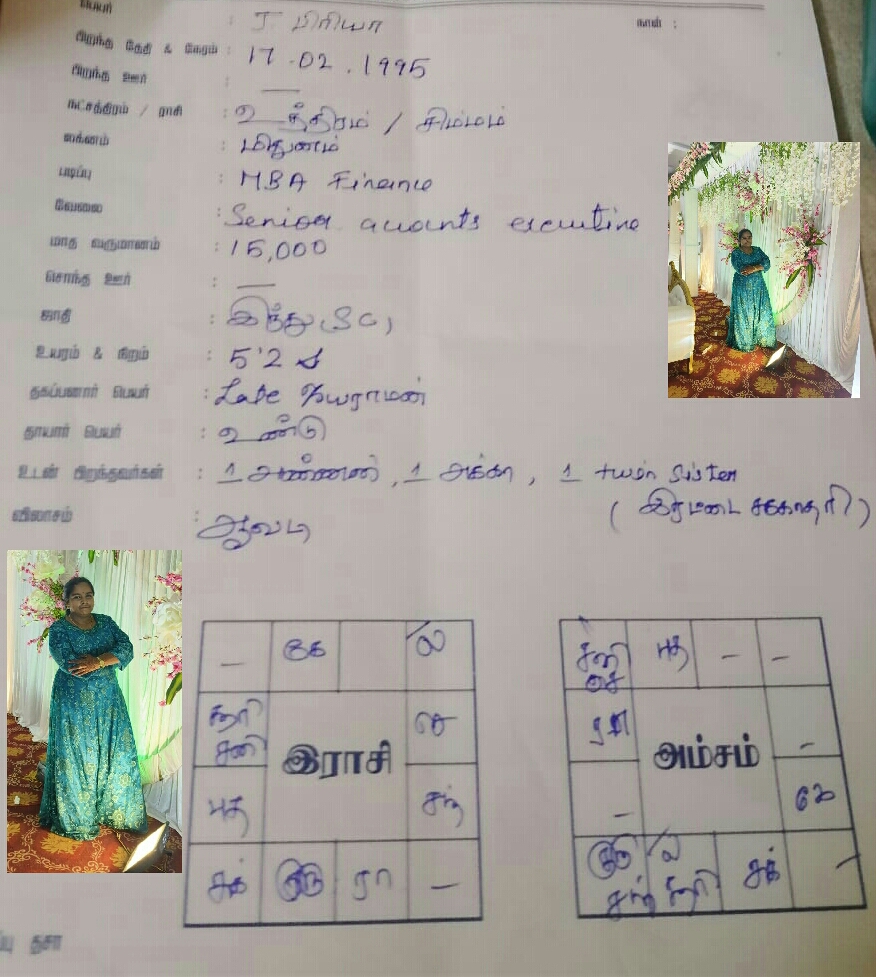 பெயர் : J. பிரியா நாள் :
பிறந்த தேதி & நேரம் : 17.02.1995
பிறந்த ஊர் : —
நட்சத்திரம் / ராசி : உத்திரம் / சிம்மம்
லக்னம் : மிதுனம்
படிப்பு : MBA Finance
வேலை : Senior accounts executive
மாத வருமானம் : 15,000
சொந்த ஊர் : —
ஜாதி : இந்து (SC)
உயரம் & நிறம் : 5'2
தகப்பனார் பெயர் : Late ஜயராமன்
தாயார் பெயர் : உண்டு
உடன் பிறந்தவர்கள் : 1 அண்ணன், 1 அக்கா, 1 twin sister
(இரட்டை சகோதரி)
விலாசம் : ஆவடி
— கே ல
சூரி சனி செ
இராசி
புத சந்
சுக் குரு ரா —
சனி செ புத — —
ரா —
அம்சம்
— கே
குரு சந் ல சூரி சுக் —
ப்பு தசா